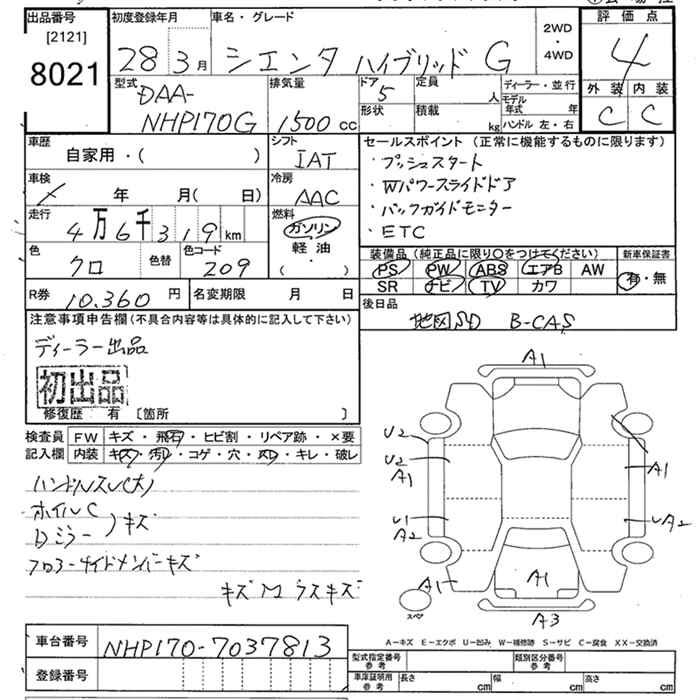 出品番号
[2121]
8021
初度登録年月
28 3月
車名・グレード
シエンタ ハイブリッド G
2WD
・
4WD
評価点
4
外装 内装
C C
型式
DAA-
NHP170G
排気量
1500 cc
ドア
5
形状
定員
人
積載
kg
ディーラー・並行
モデル
年式 年
ハンドル 左・右
車歴
自家用・( )
シフト
IAT
車検
年 月( 日)
冷房
AAC
走行
4万6千319km
燃料
ガソリン
軽油
・
( )
色
クロ
色替
色コード
209
R券 10,360 円
名変期限 月 日
セールスポイント(正常に機能するものに限ります)
・プッシュスタート
・Wパワースライドドア
・バックガイドモニター
・ETC
装備品(純正品に限り○をつけてください)
新車保証書
PS PW ABS エアB AW
SR ナビ TV カワ
有・無
後日品
地図SD B-CAS
注意事項申告欄(不具合内容等は具体的に記入して下さい)
ディーラー出品
初出品
修復歴 有 [箇所 ]
検査員
記入欄
FW キズ・飛石・ヒビ割・リペア跡・×要
内装 キズ・汚レ・コゲ・穴・凹・キレ・破レ
ホイルC
Dミラー )キズ
A1
U2
U2
A1
U1
A2
A1
UA2
A1
A1
A3
スペア
A-キズ E-エクボ U-凹み W-補修跡 S-サビ C-腐食 XX-交換済
車台番号 NHP170-7037813
登録番号
型式指定番号
参考
類別区分番号
参考
車庫証明用
参考
長さ cm 幅 cm 高さ cm